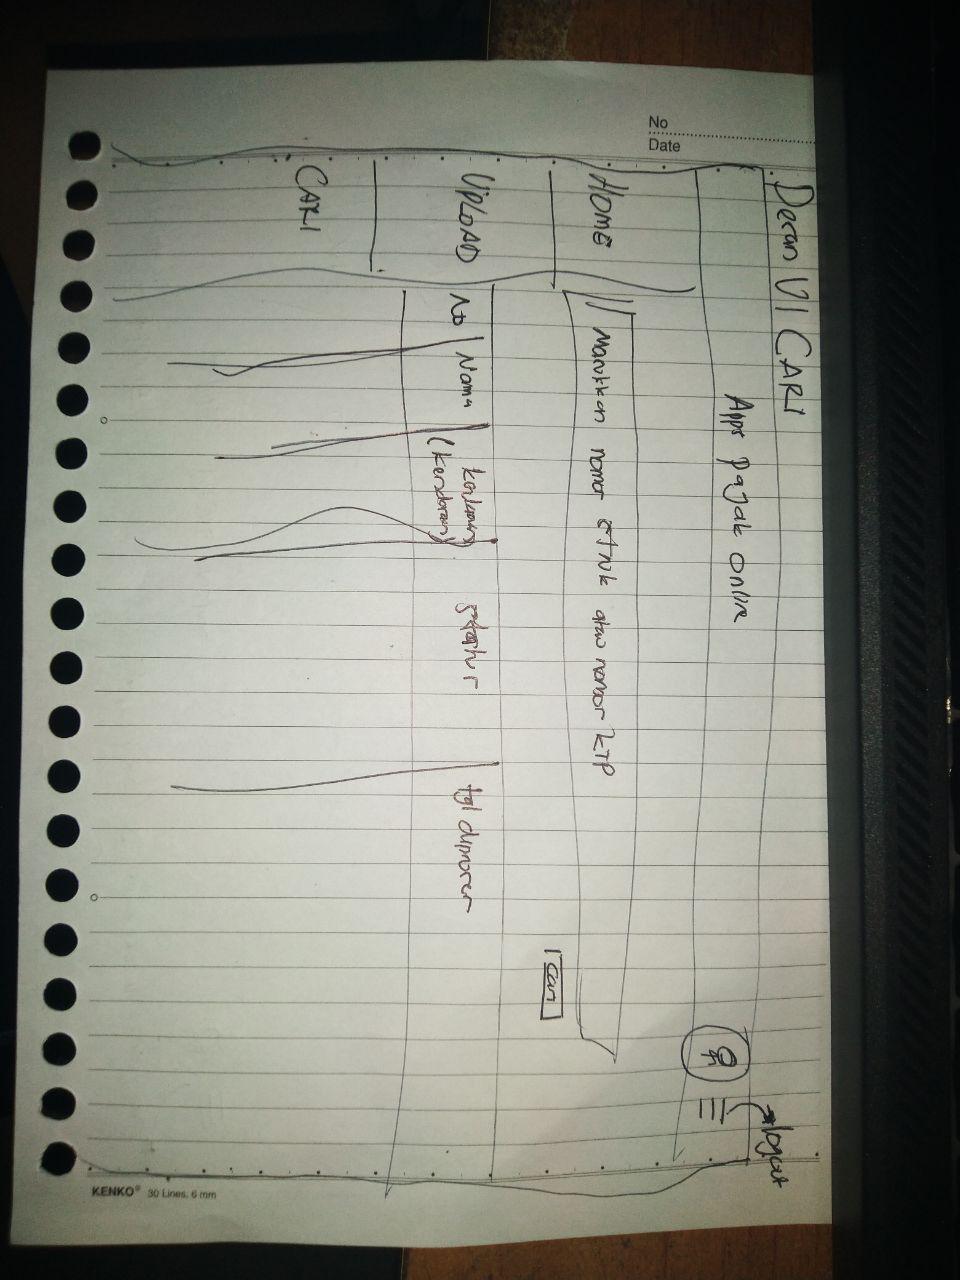 No
Date
Deran UI CARI
Apps Pajak Online
logout
HOME
UPLOAD
CARI
Masukkan nomor STNK atau nomor KTP
cari
No
Nama
(kendaraan)
tgl
KENKO® 30 Lines, 6 mm